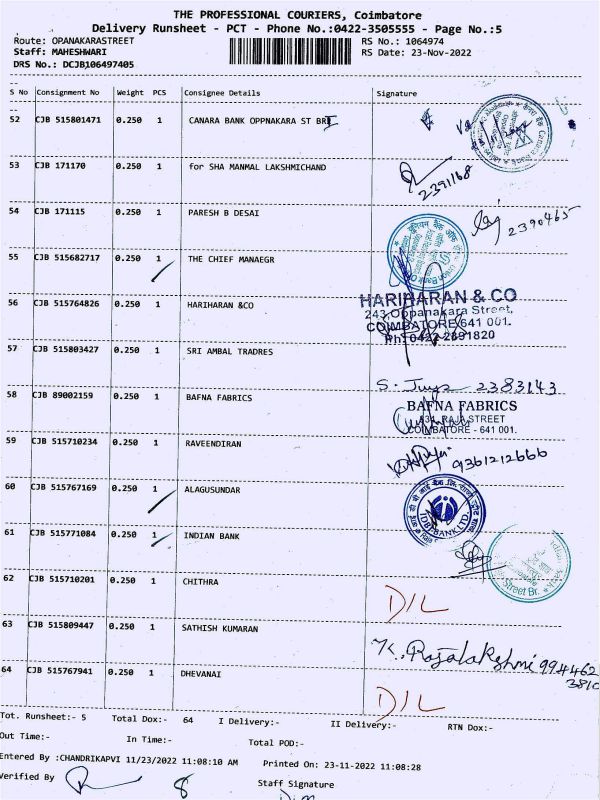 THE PROFESSIONAL COURIERS, Coimbatore
Delivery Runsheet - PCT - Phone No.:0422-3505555 - Page No.:5
Route: OPANAKARASTREET RS No.: 1064974
Staff: MAHESHWARI RS Date: 23-Nov-2022
DRS No.: DCJB106497405
S No Consignment No Weight PCS Consignee Details Signature
52 CJB 515801471 0.250 1 CANARA BANK OPPNAKARA ST BR
53 CJB 171170 0.250 1 for SHA MANMAL LAKSHMICHAND
2391168
54 CJB 171115 0.250 1 PARESH B DESAI
2390465
55 CJB 515682717 0.250 1 THE CHIEF MANAEGR
56 CJB 515764826 0.250 1 HARIHARAN &CO
HARIHARAN & CO
243, Oppanakara Street,
COIMBATORE 641 001.
Ph: 0422-2391820
57 CJB 515803427 0.250 1 SRI AMBAL TRADRES
2383143
58 CJB 89002159 0.250 1 BAFNA FABRICS
BAFNA FABRICS
RAJA STREET
COIMBATORE - 641 001.
59 CJB 515710234 0.250 1 RAVEENDIRAN
9361212666
60 CJB 515767169 0.250 1 ALAGUSUNDAR
IDBI BANK LTD.
61 CJB 515771084 0.250 1 INDIAN BANK
Street Br.
62 CJB 515710201 0.250 1 CHITHRA
D/L
63 CJB 515809447 0.250 1 SATHISH KUMARAN
K. Rajalakshmi 994462
3810
64 CJB 515767941 0.250 1 DHEVANAI
D/L
Tot. Runsheet:- 5 Total Dox:- 64 I Delivery:- II Delivery:- RTN Dox:-
Out Time:- In Time:- Total POD:-
Entered By :CHANDRIKAPVI 11/23/2022 11:08:10 AM Printed On: 23-11-2022 11:08:28
Verified By Staff Signature